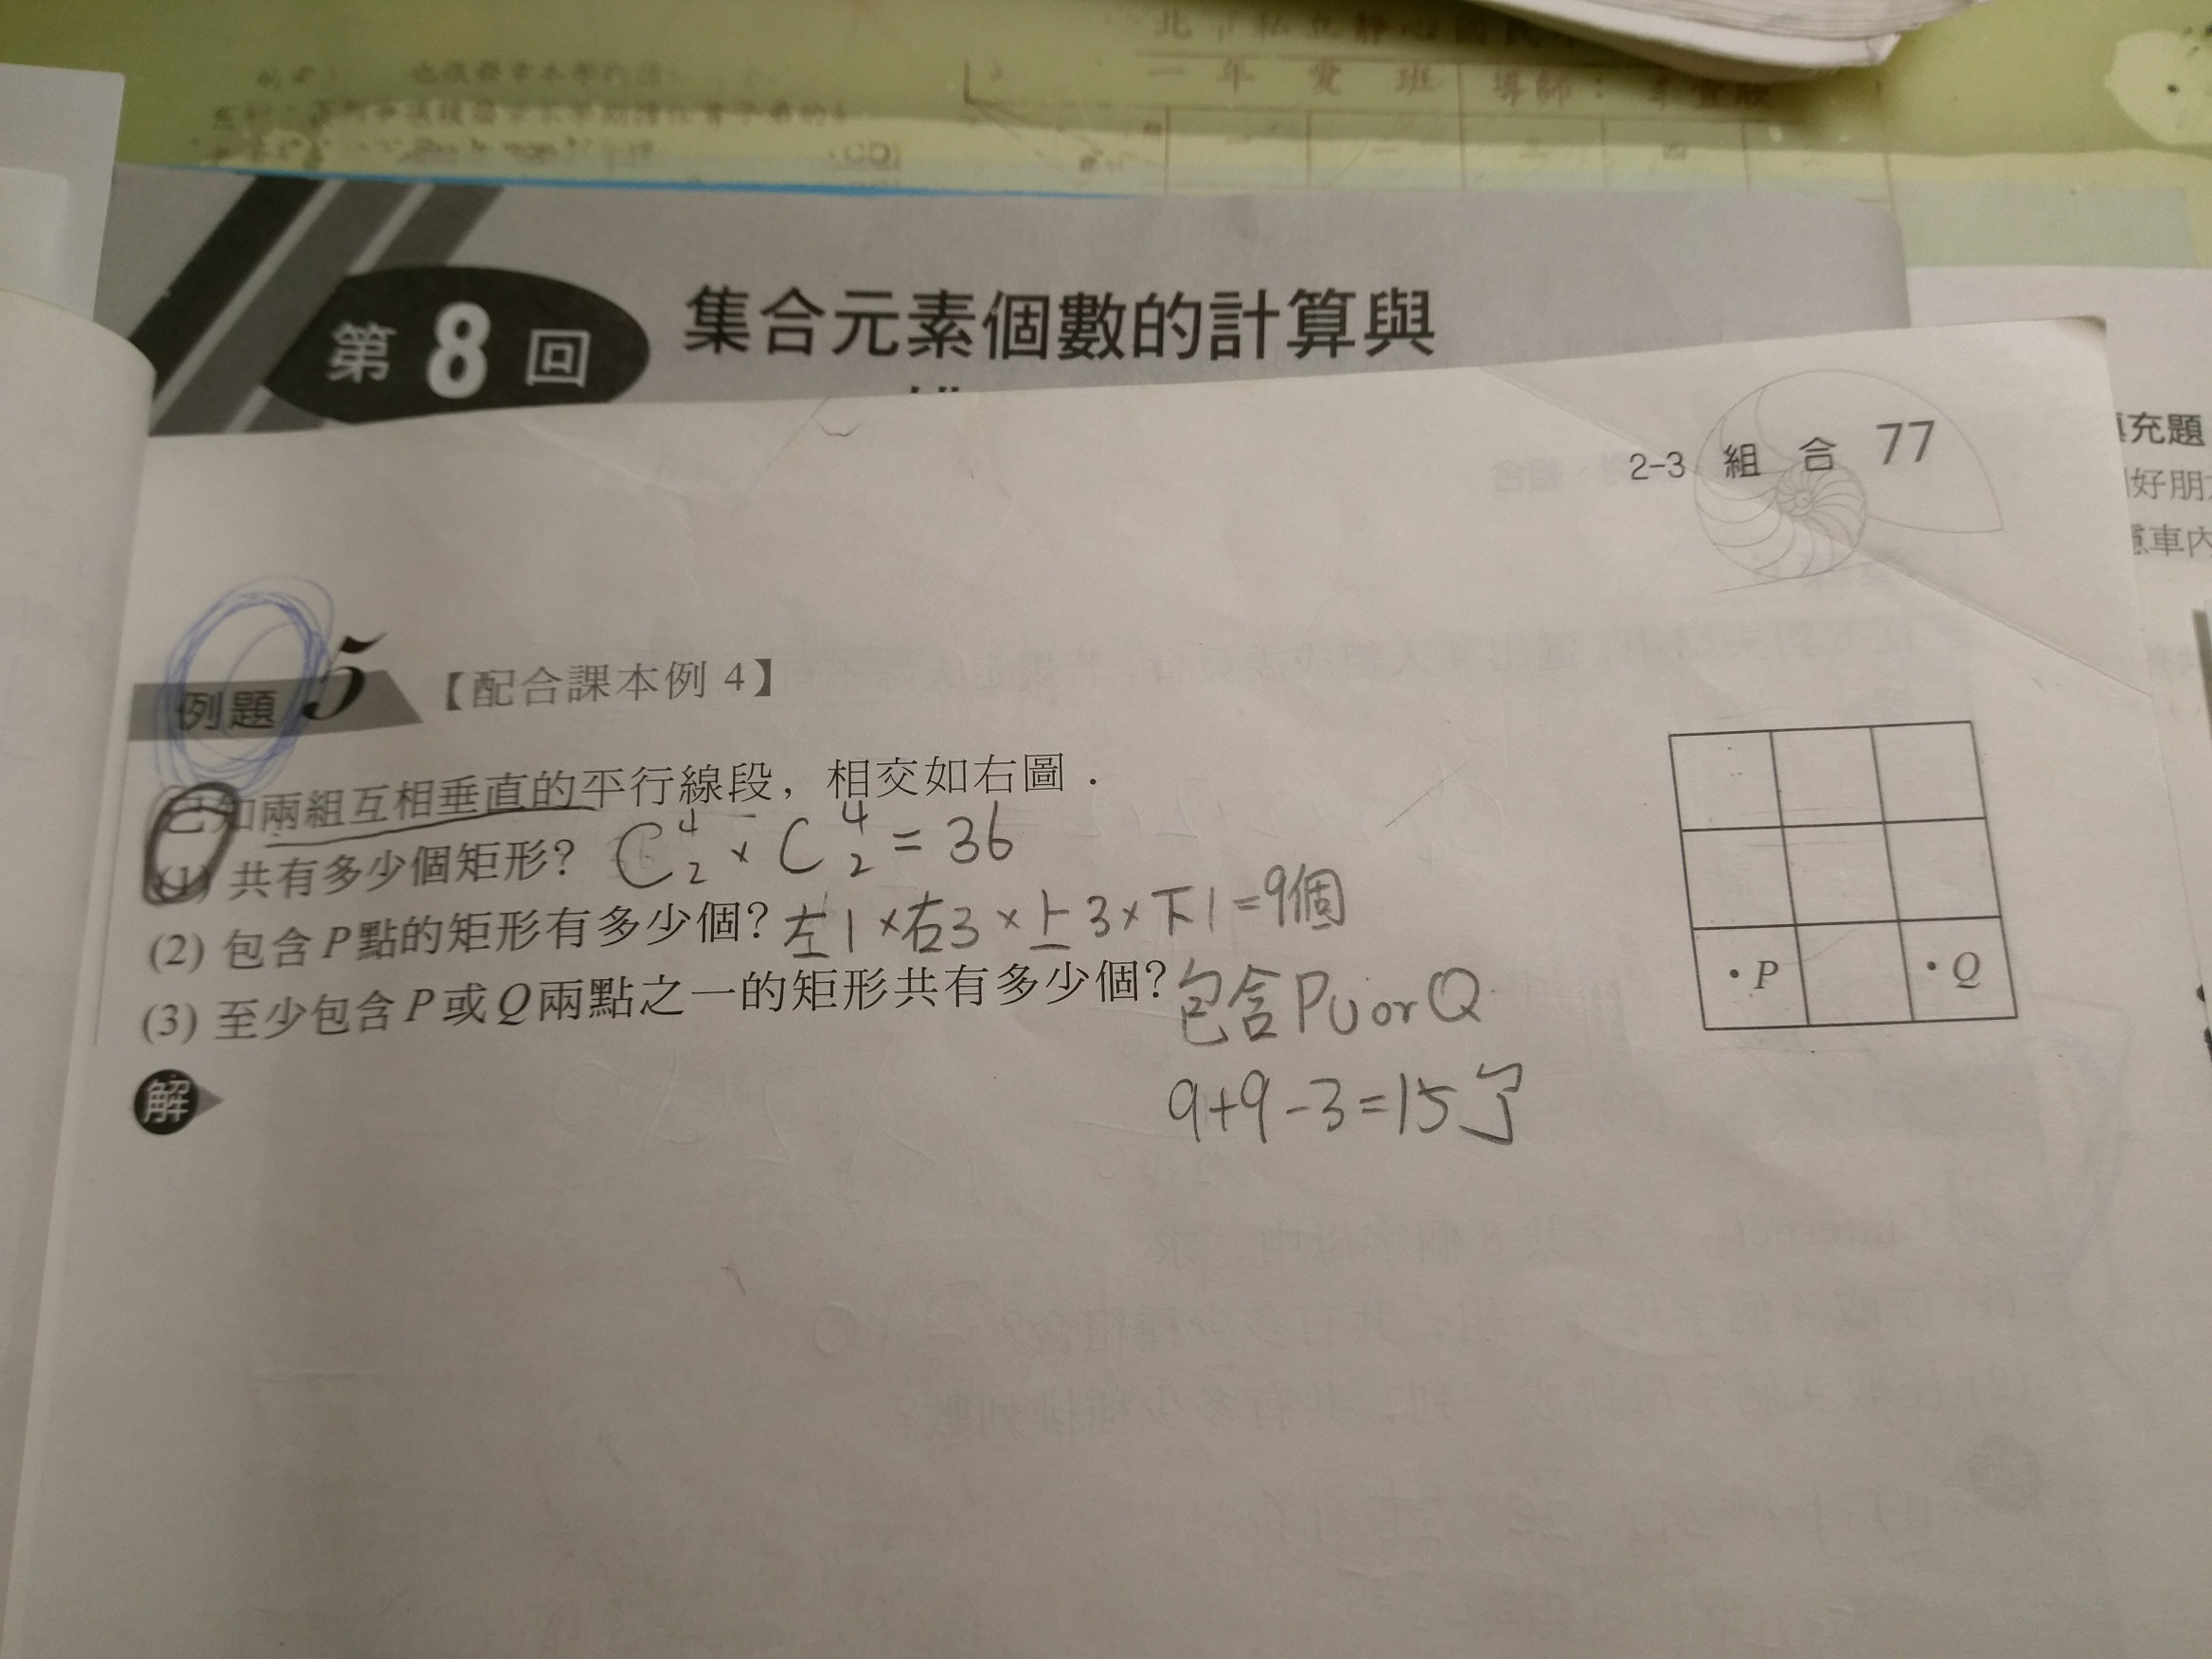 一年 愛 班 導師：
一 二 三 四
第 8 回 集合元素個數的計算與
2-3 組 合 77
填充題
好朋
車內
例題 5 【配合課本例 4】
已知兩組互相垂直的平行線段，相交如右圖．
(1) 共有多少個矩形？ C⁴₂ × C⁴₂ = 36
(2) 包含 P 點的矩形有多少個？ 左1×右3×上3×下1=9個
(3) 至少包含 P 或 Q 兩點之一的矩形共有多少個？ 包含P∪or Q
9+9-3=15
• P • Q
解